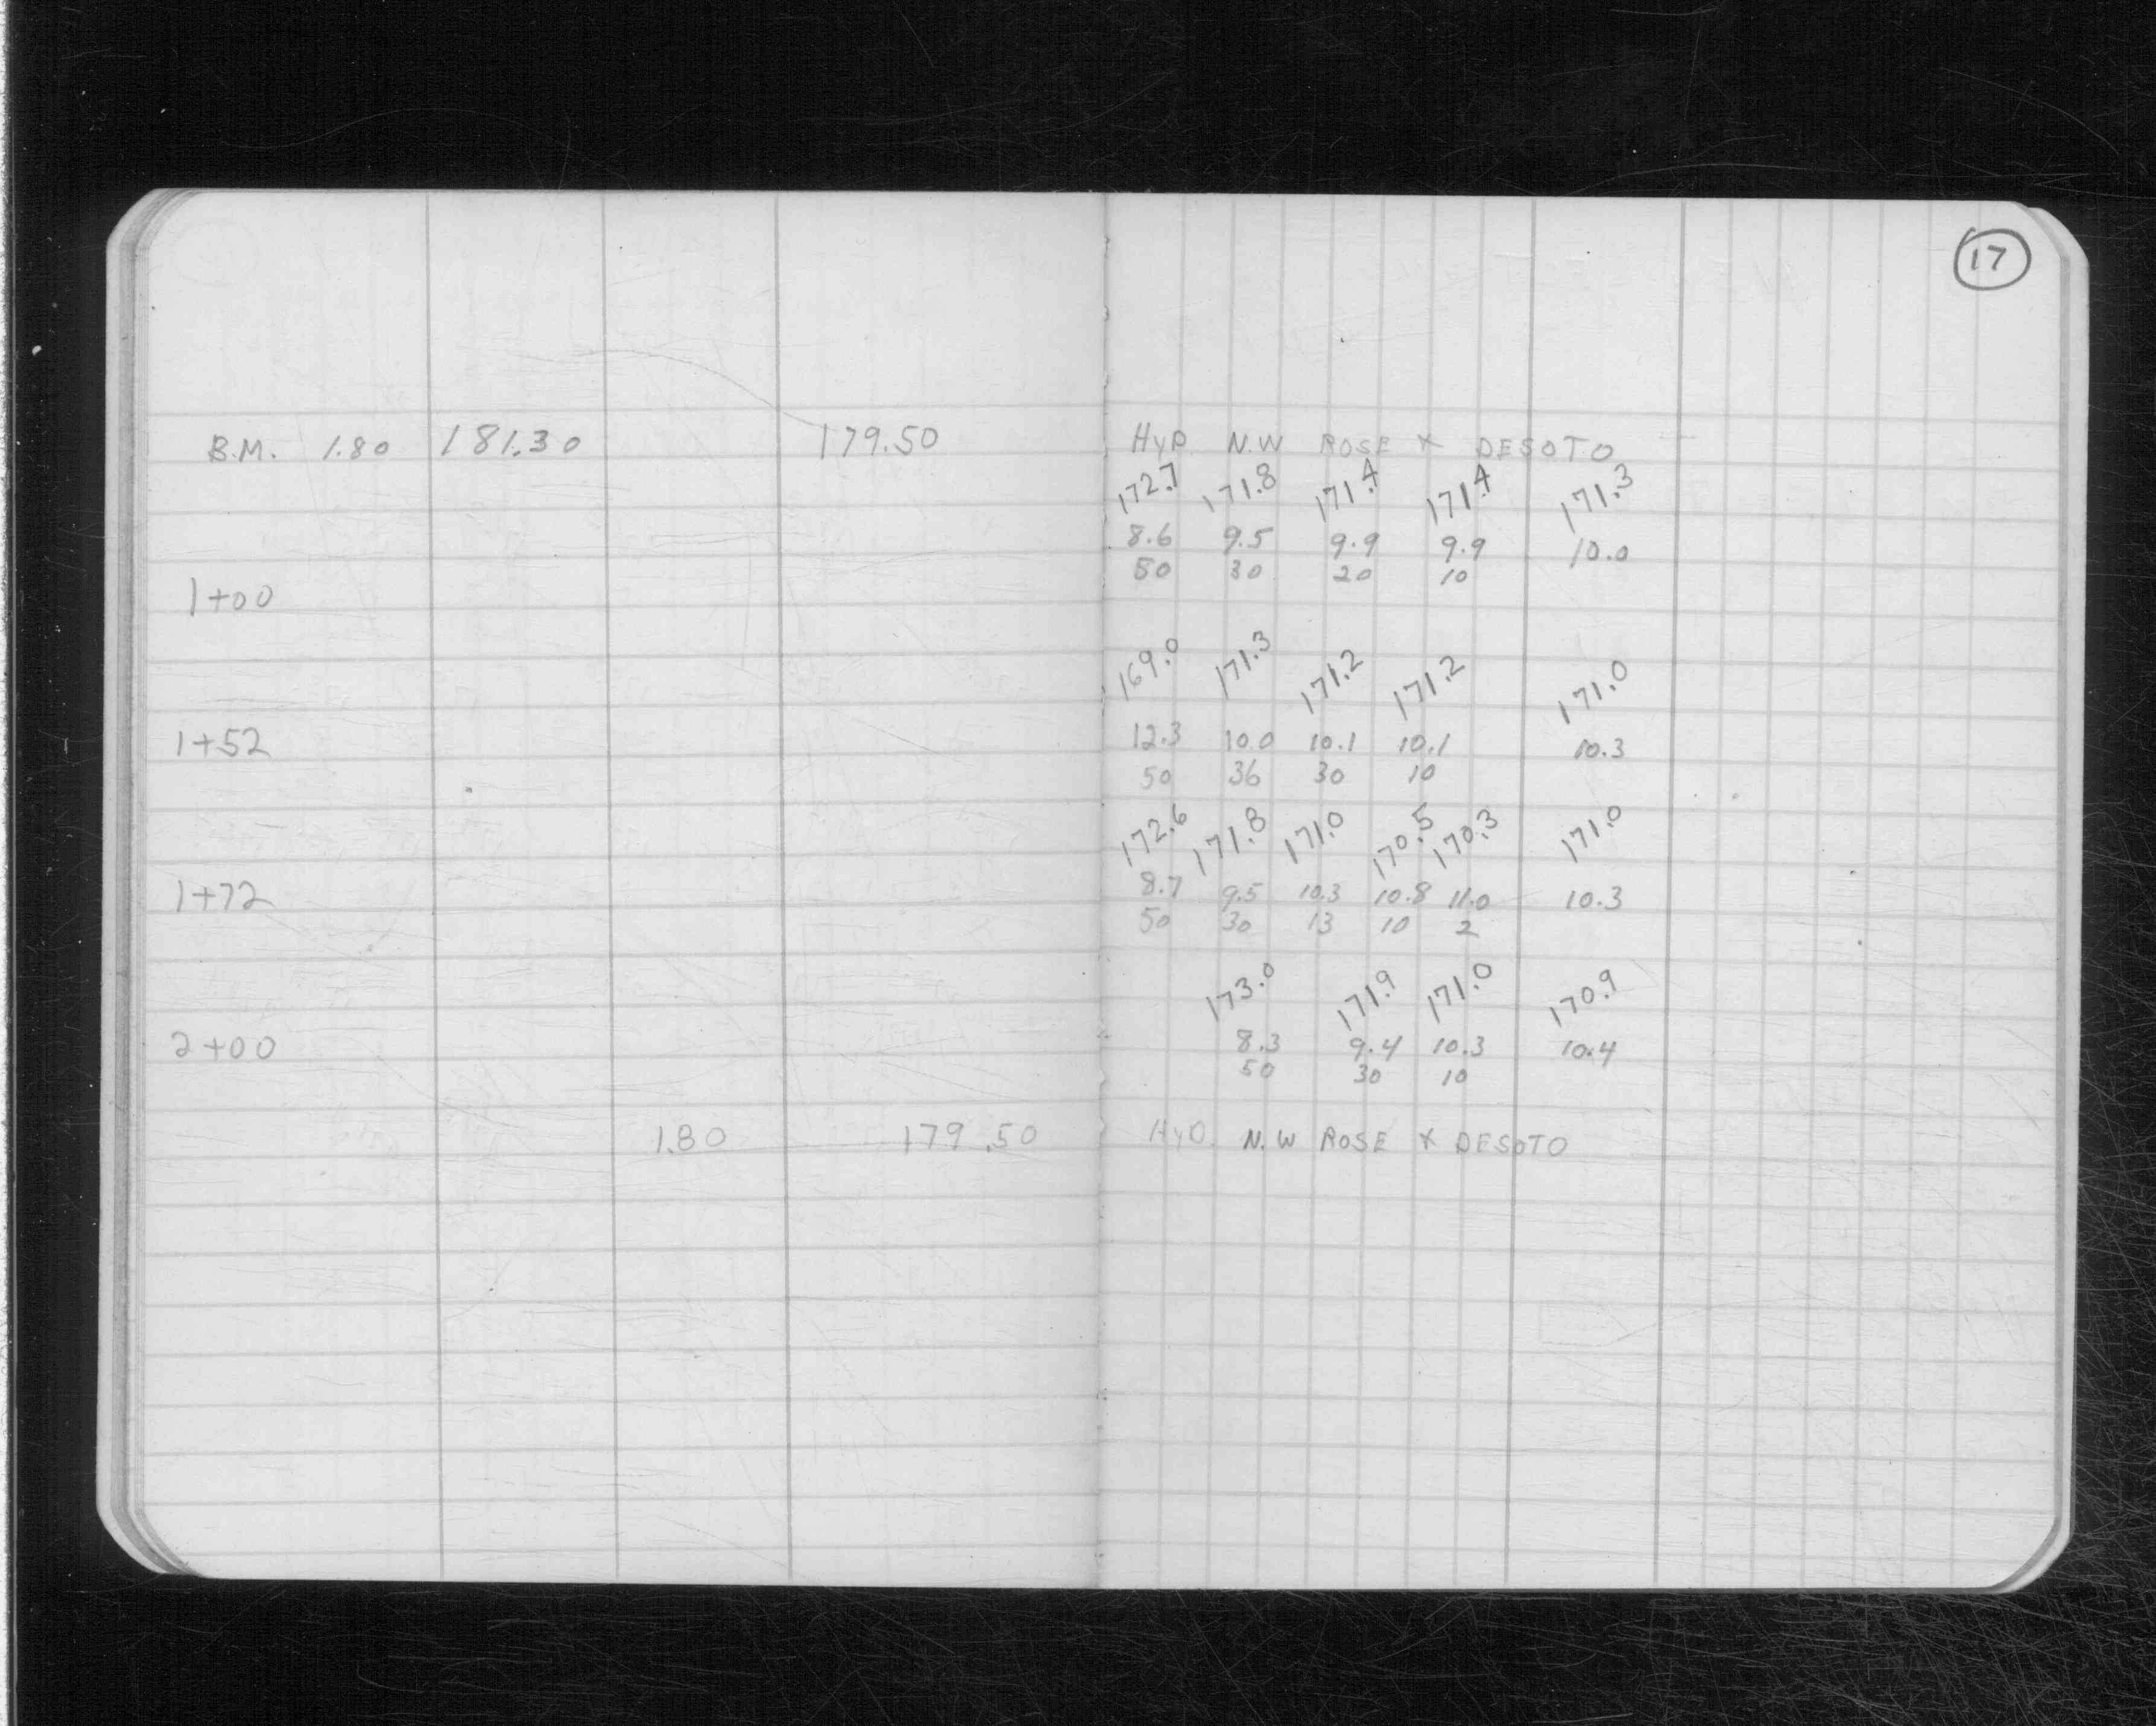 17
B.M. 1.80 181.30 179.50 HYD. N.W ROSE X DESOTO
172.7 171.8 171.4 171.4 171.3
8.6 9.5 9.9 9.9 10.0
50 30 20 10
1+00
169.0 171.3 171.2 171.2 171.0
1+52 12.3 10.0 10.1 10.1 10.3
50 36 30 10
172.6 171.8 171.0 170.5 170.3 171.0
1+72 8.7 9.5 10.3 10.8 11.0 10.3
50 30 13 10 2
173.0 171.9 171.0 170.9
2+00 8.3 9.4 10.3 10.4
50 30 10
1.80 179.50 HYD. N.W ROSE X DESOTO